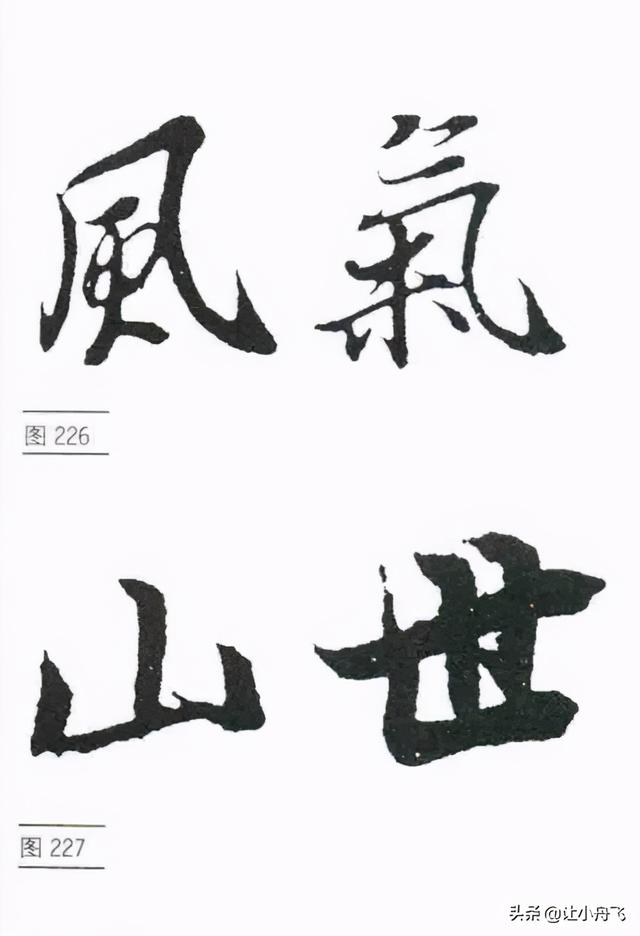 風氣
图 226
山世
图 227
头条 @让小舟飞